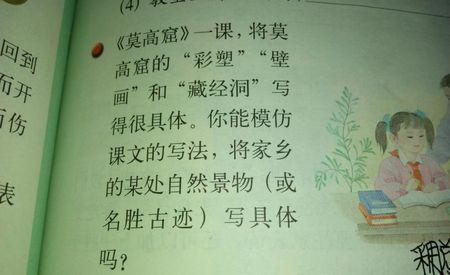 (4)
《莫高窟》一课，将莫
高窟的“彩塑”“壁
画”和“藏经洞”写
得很具体。你能模仿
课文的写法，将家乡
的某处自然景物（或
名胜古迹）写具体
吗？
回到
而开
伤
表